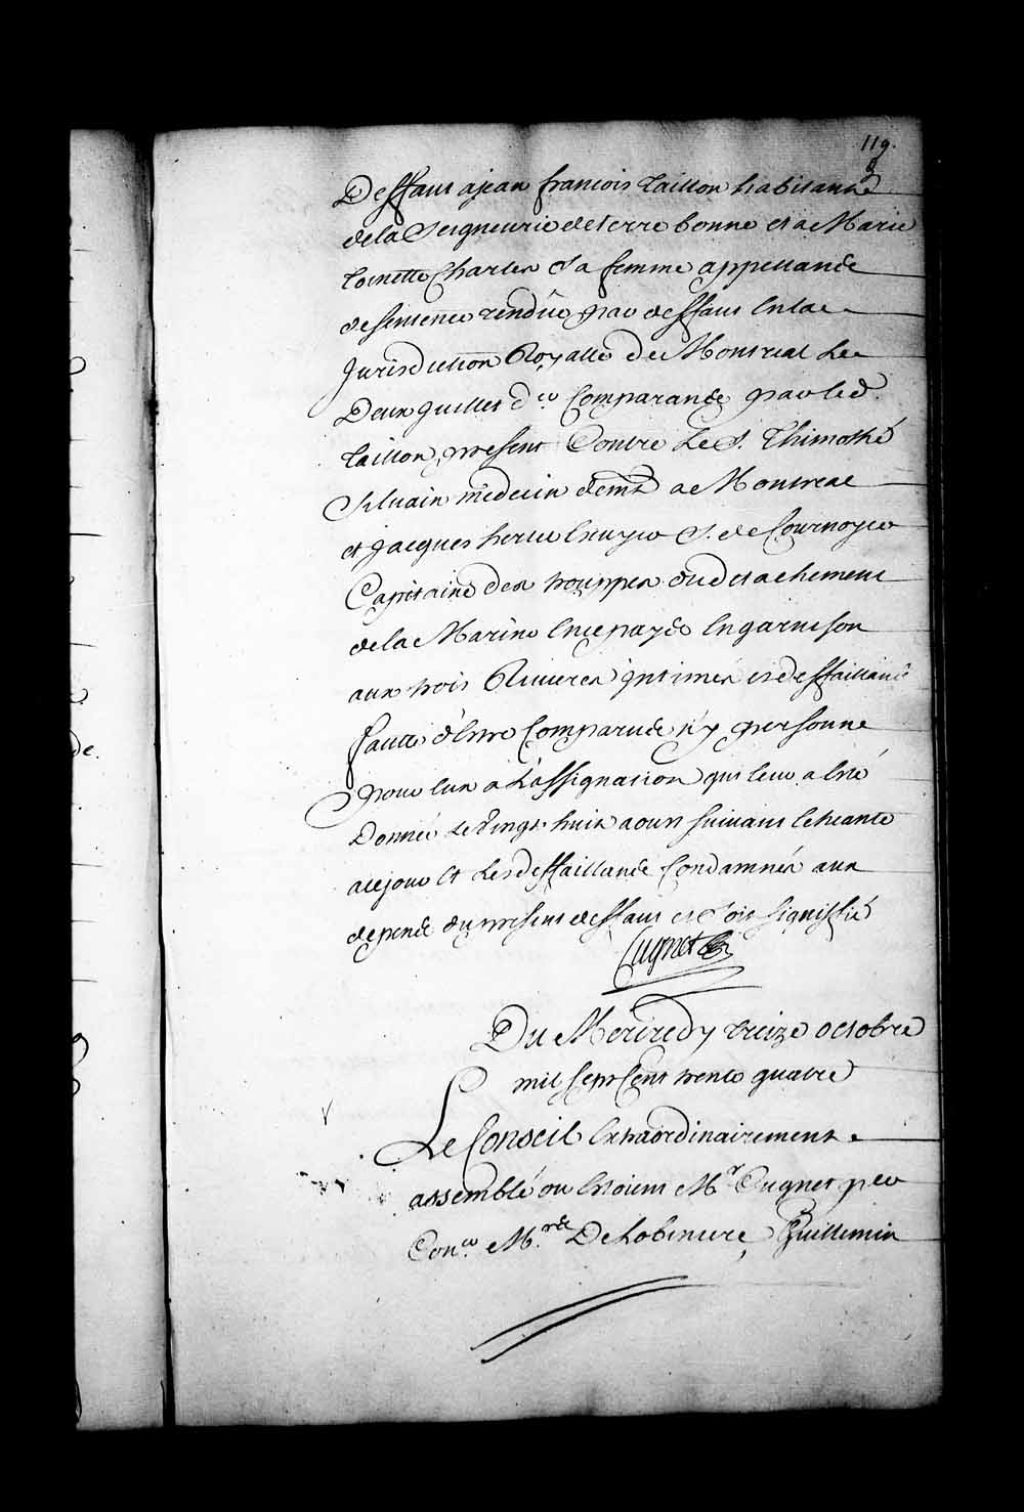 119.
Deffaut a jean francois taillon habitant
de la Seigneurie de terre bonne et a Marie
toinette Charles sa femme appellands
de sentence rendüe par deffaut en la
Jurisdiction Royalle de Montreal le
Deux juillet d.er Comparands par led.
taillon present Contre Le S. Thimothé
Siluain médecin demt a Montreal
et jacques herué S. de Cournoyer
Capitaine des trouppes du detachement
de la Marine en ce pays en garnison
aux trois Riuieres intimés et deffaillants
faute d'etre Comparuds ny personne
pour eux a L'assignation qui leur a eté
Donnée le Vingt huit aoust suiuant
a ce jour et les deffaillands Condamnés aux
depends du present deffaut et soit signiffié
Cugnet
Du Mercredy treize octobre
mil sept Cent trente quatre
Le Conseil Extraordinairement
assemblé ou Etoient Mr. Cugnet per
Con.er Mrs. De Lobiniere, Guillimin